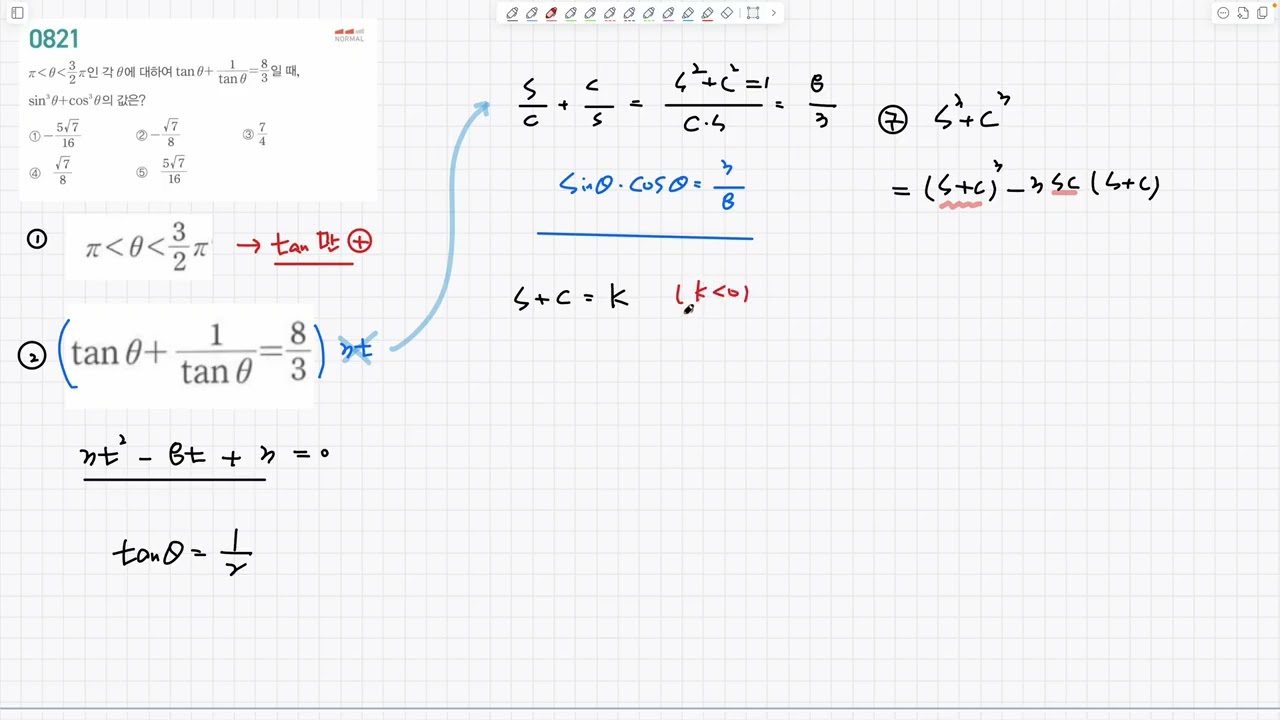 0821
NORMAL
π<θ<3/2π인 각 θ에 대하여 tanθ+1/tanθ=8/3일 때,
sin³θ+cos³θ의 값은?
① -5√7/16 ② -√7/8 ③ 7/4
④ √7/8 ⑤ 5√7/16
① π<θ<3/2π → tan 만 ⊕
② (tanθ+1/tanθ=8/3) 3t
3t² - 8t + 3 = 0
tanθ = 1/2
s/c + c/s = s²+c²=1/c·s = 8/3
sinθ·cosθ = 3/8
s+c = k (k<0)
⑦ s³+c³
= (s+c)³ - 3sc(s+c)